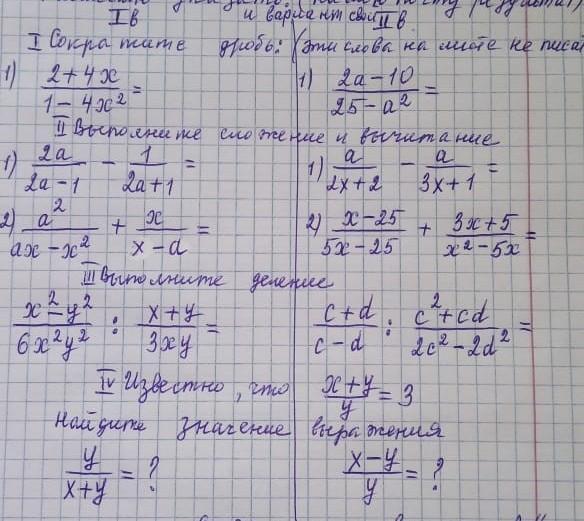 I в II в
и вариант свой
I Сократите дробь: (эти слова на листе не писат
1) (2+4x)/(1-4x²) = 1) (2a-10)/(25-a²) =
II Выполните сложение и вычитание
1) 2a/(2a-1) - 1/(2a+1) = 1) a/(2x+2) - a/(3x+1) =
2) a²/(ax-x²) + x/(x-a) = 2) (x-25)/(5x-25) + (3x+5)/(x²-5x) =
III Выполните деление
(x²-y²)/(6x²y²) : (x+y)/(3xy) = (c+d)/(c-d) : (c²+cd)/(2c²-2d²) =
IV Известно, что (x+y)/y = 3
Найдите значение выражения
y/(x+y) = ? (x-y)/y = ?